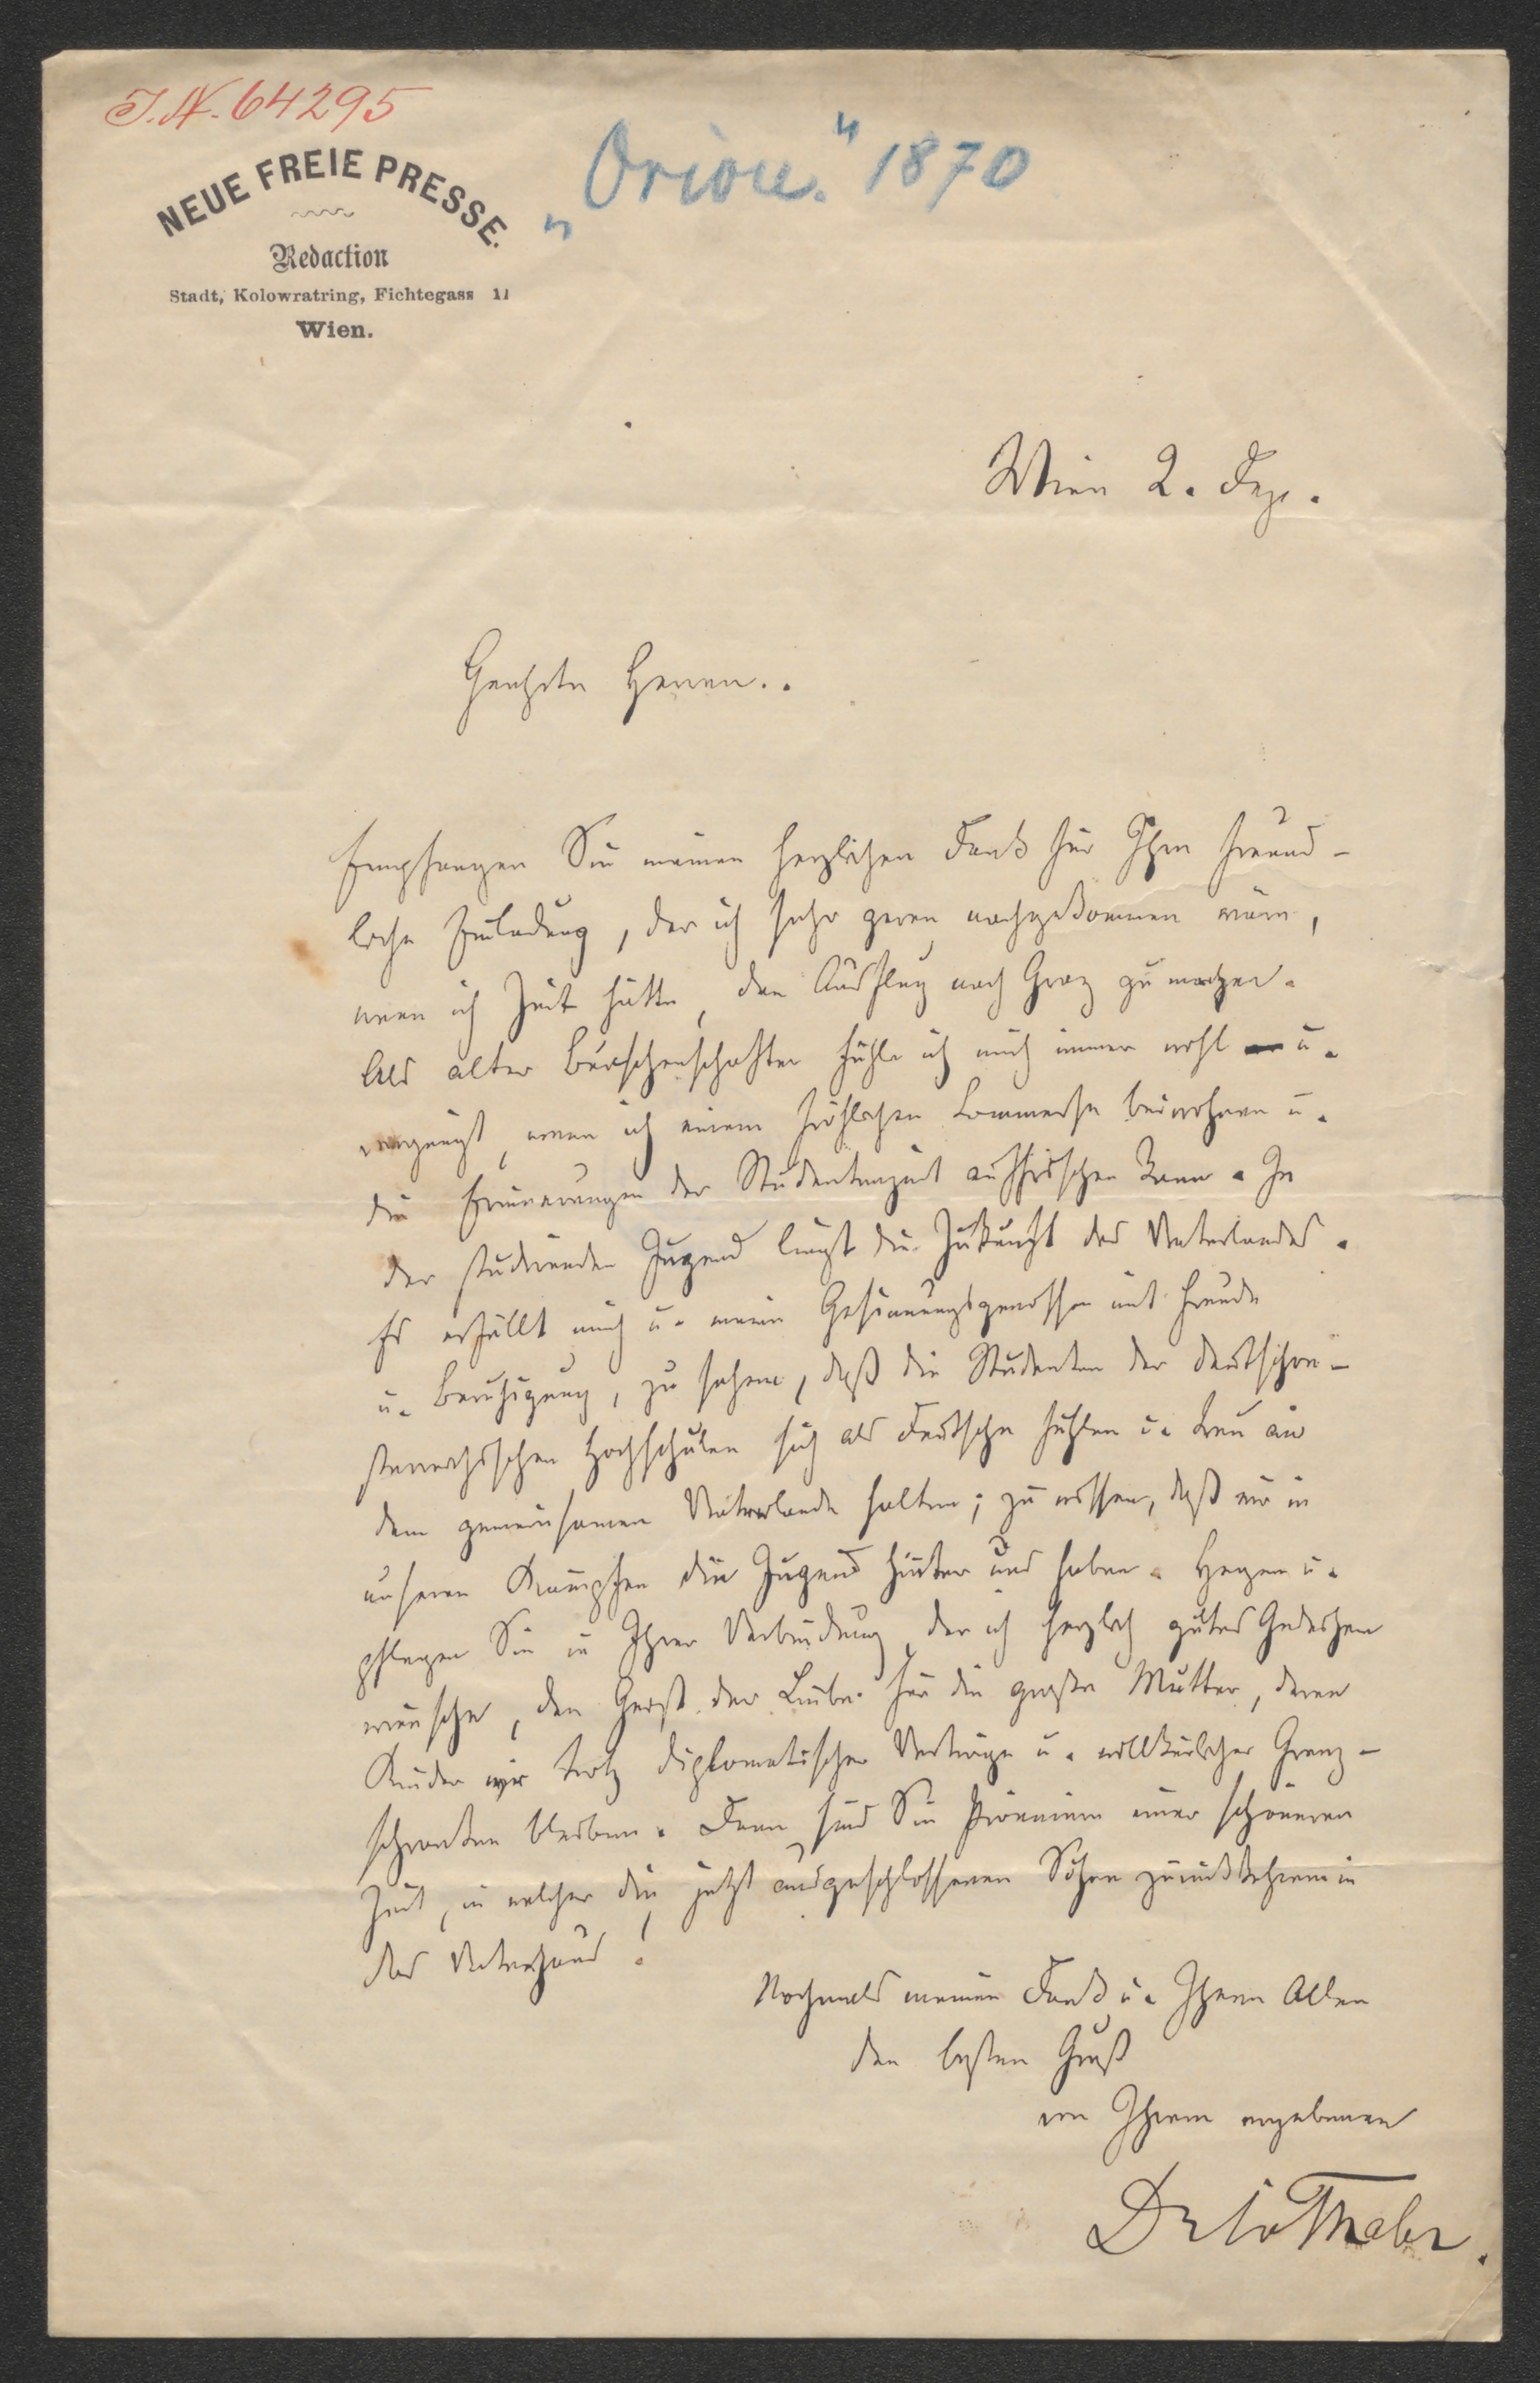 I.N. 64295
„Orion." 1870
NEUE FREIE PRESSE.
Redaction
Stadt, Kolowratring, Fichtegass 11
Wien.
Wien 2. Dez.
Geehrte Herren..
Empfangen Sie meinen herzlichen Dank für Ihre freund-
liche Einladung, der ich sehr gerne nachgekommen wäre,
wenn ich Zeit hätte, den Ausflug nach Graz zu machen.
Als alter Burschenschafter fühle ich mich immer wohl u.
vergnügt, wenn ich einem fröhlichen Commerse beiwohnen u.
die Erinnerungen der Studentenzeit auffrischen kann. In
der studirenden Jugend liegt die Zukunft des Vaterlandes.
Es erfüllt mich u. meine Gesinnungsgenossen mit Freude
u. Beruhigung, zu sehen, daß die Studenten der deutschoe-
sterreichischen Hochschulen sich als Deutsche fühlen u. treu an
dem gemeinsamen Vaterlande halten; zu wissen, daß wir in
unseren Kämpfen die Jugend hinter uns haben. Hegen u.
pflegen Sie in Ihrer Verbindung, der ich herzlich gutes Gedeihen
wünsche, den Geist der Liebe für die große Mutter, deren
Kinder wir trotz diplomatischer Verträge u. willkürlicher Grenz-
schranken bleiben. Denn sind Sie Pionniere einer schöneren
Zeit, in welcher die jetzt ausgeschlossenen Söhne zurückkehren in
das Vaterhaus!
Nochmals meinen Dank u. Ihnen Allen
den besten Gruß
von Ihrem ergebenen
Dr